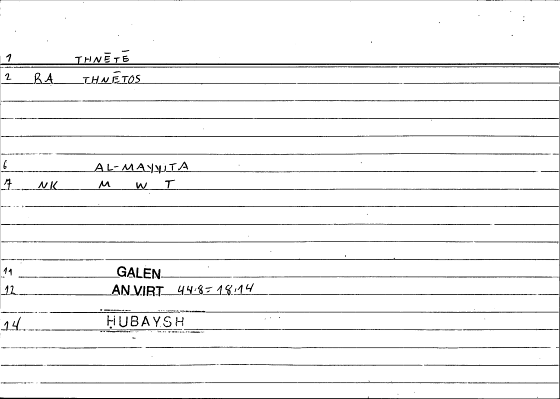 1 THNĒTĒ
2 RA THNĒTOS
6 AL-MAYYITA
7 NK M W T
11 GALEN
12 AN VIRT 44.8 = 18.14
14 ḤUBAYSH